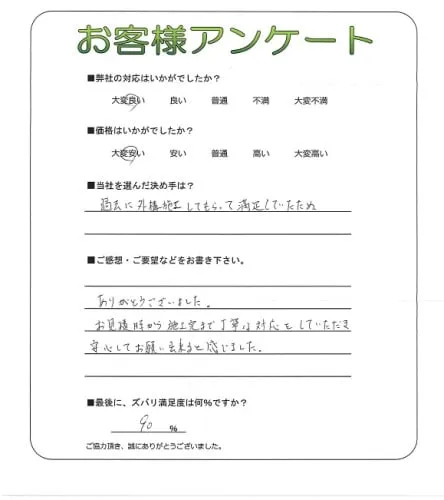 お客様アンケート
■弊社の対応はいかがでしたか？
大変良い 良い 普通 不満 大変不満
■価格はいかがでしたか？
大変安い 安い 普通 高い 大変高い
■当社を選んだ決め手は？
過去に外構施工してもらって満足していたため
■ご感想・ご要望などをお書き下さい。
ありがとうございました。
お見積時から施工完まで丁寧な対応をしていただき
安心してお願い出来ると感じました。
■最後に、ズバリ満足度は何％ですか？
90 ％
ご協力頂き、誠にありがとうございました。